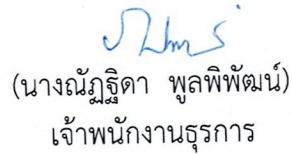 (นางณัฏฐิดา พูลพิพัฒน์)
เจ้าพนักงานธุรการ